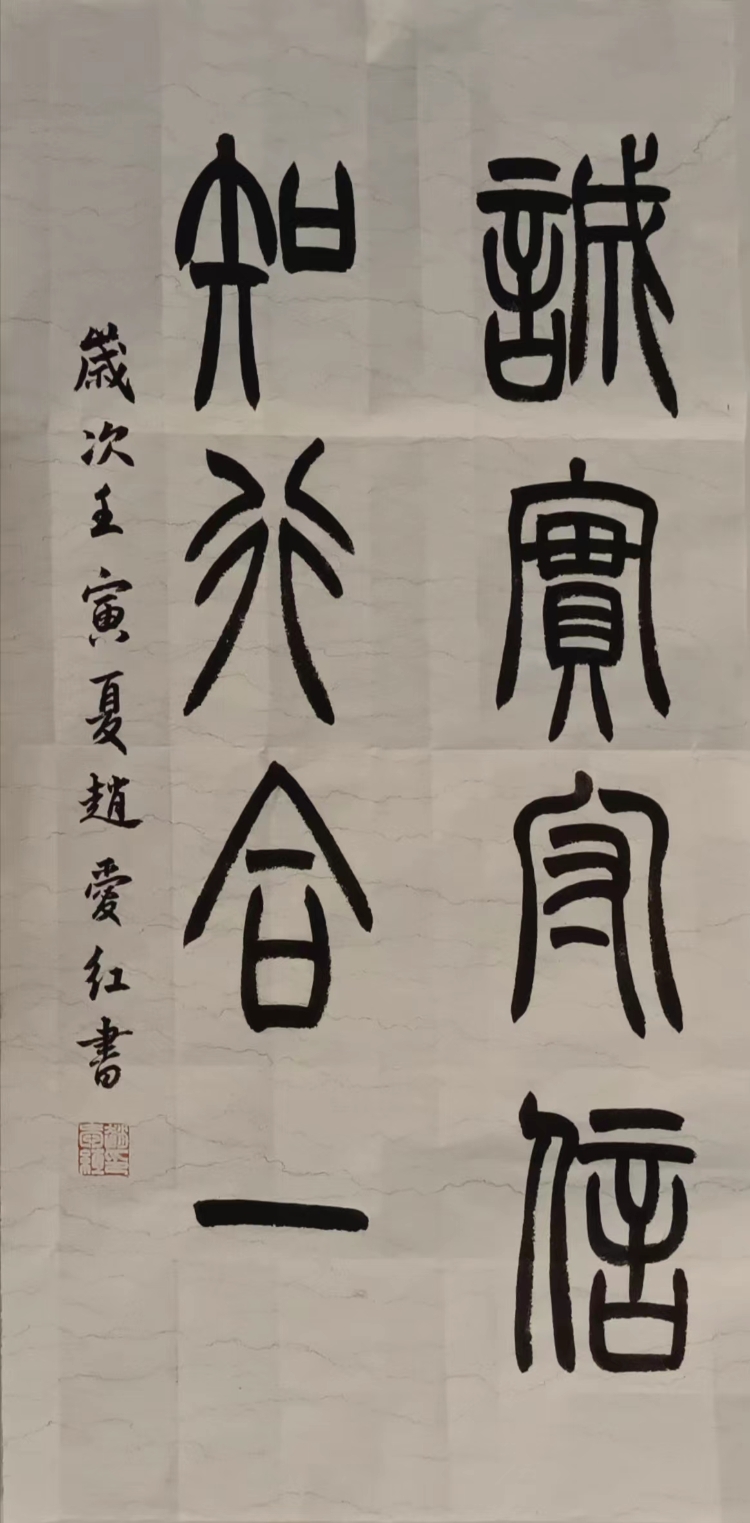 誠實守信
知行合一
歲次壬寅夏趙愛红書